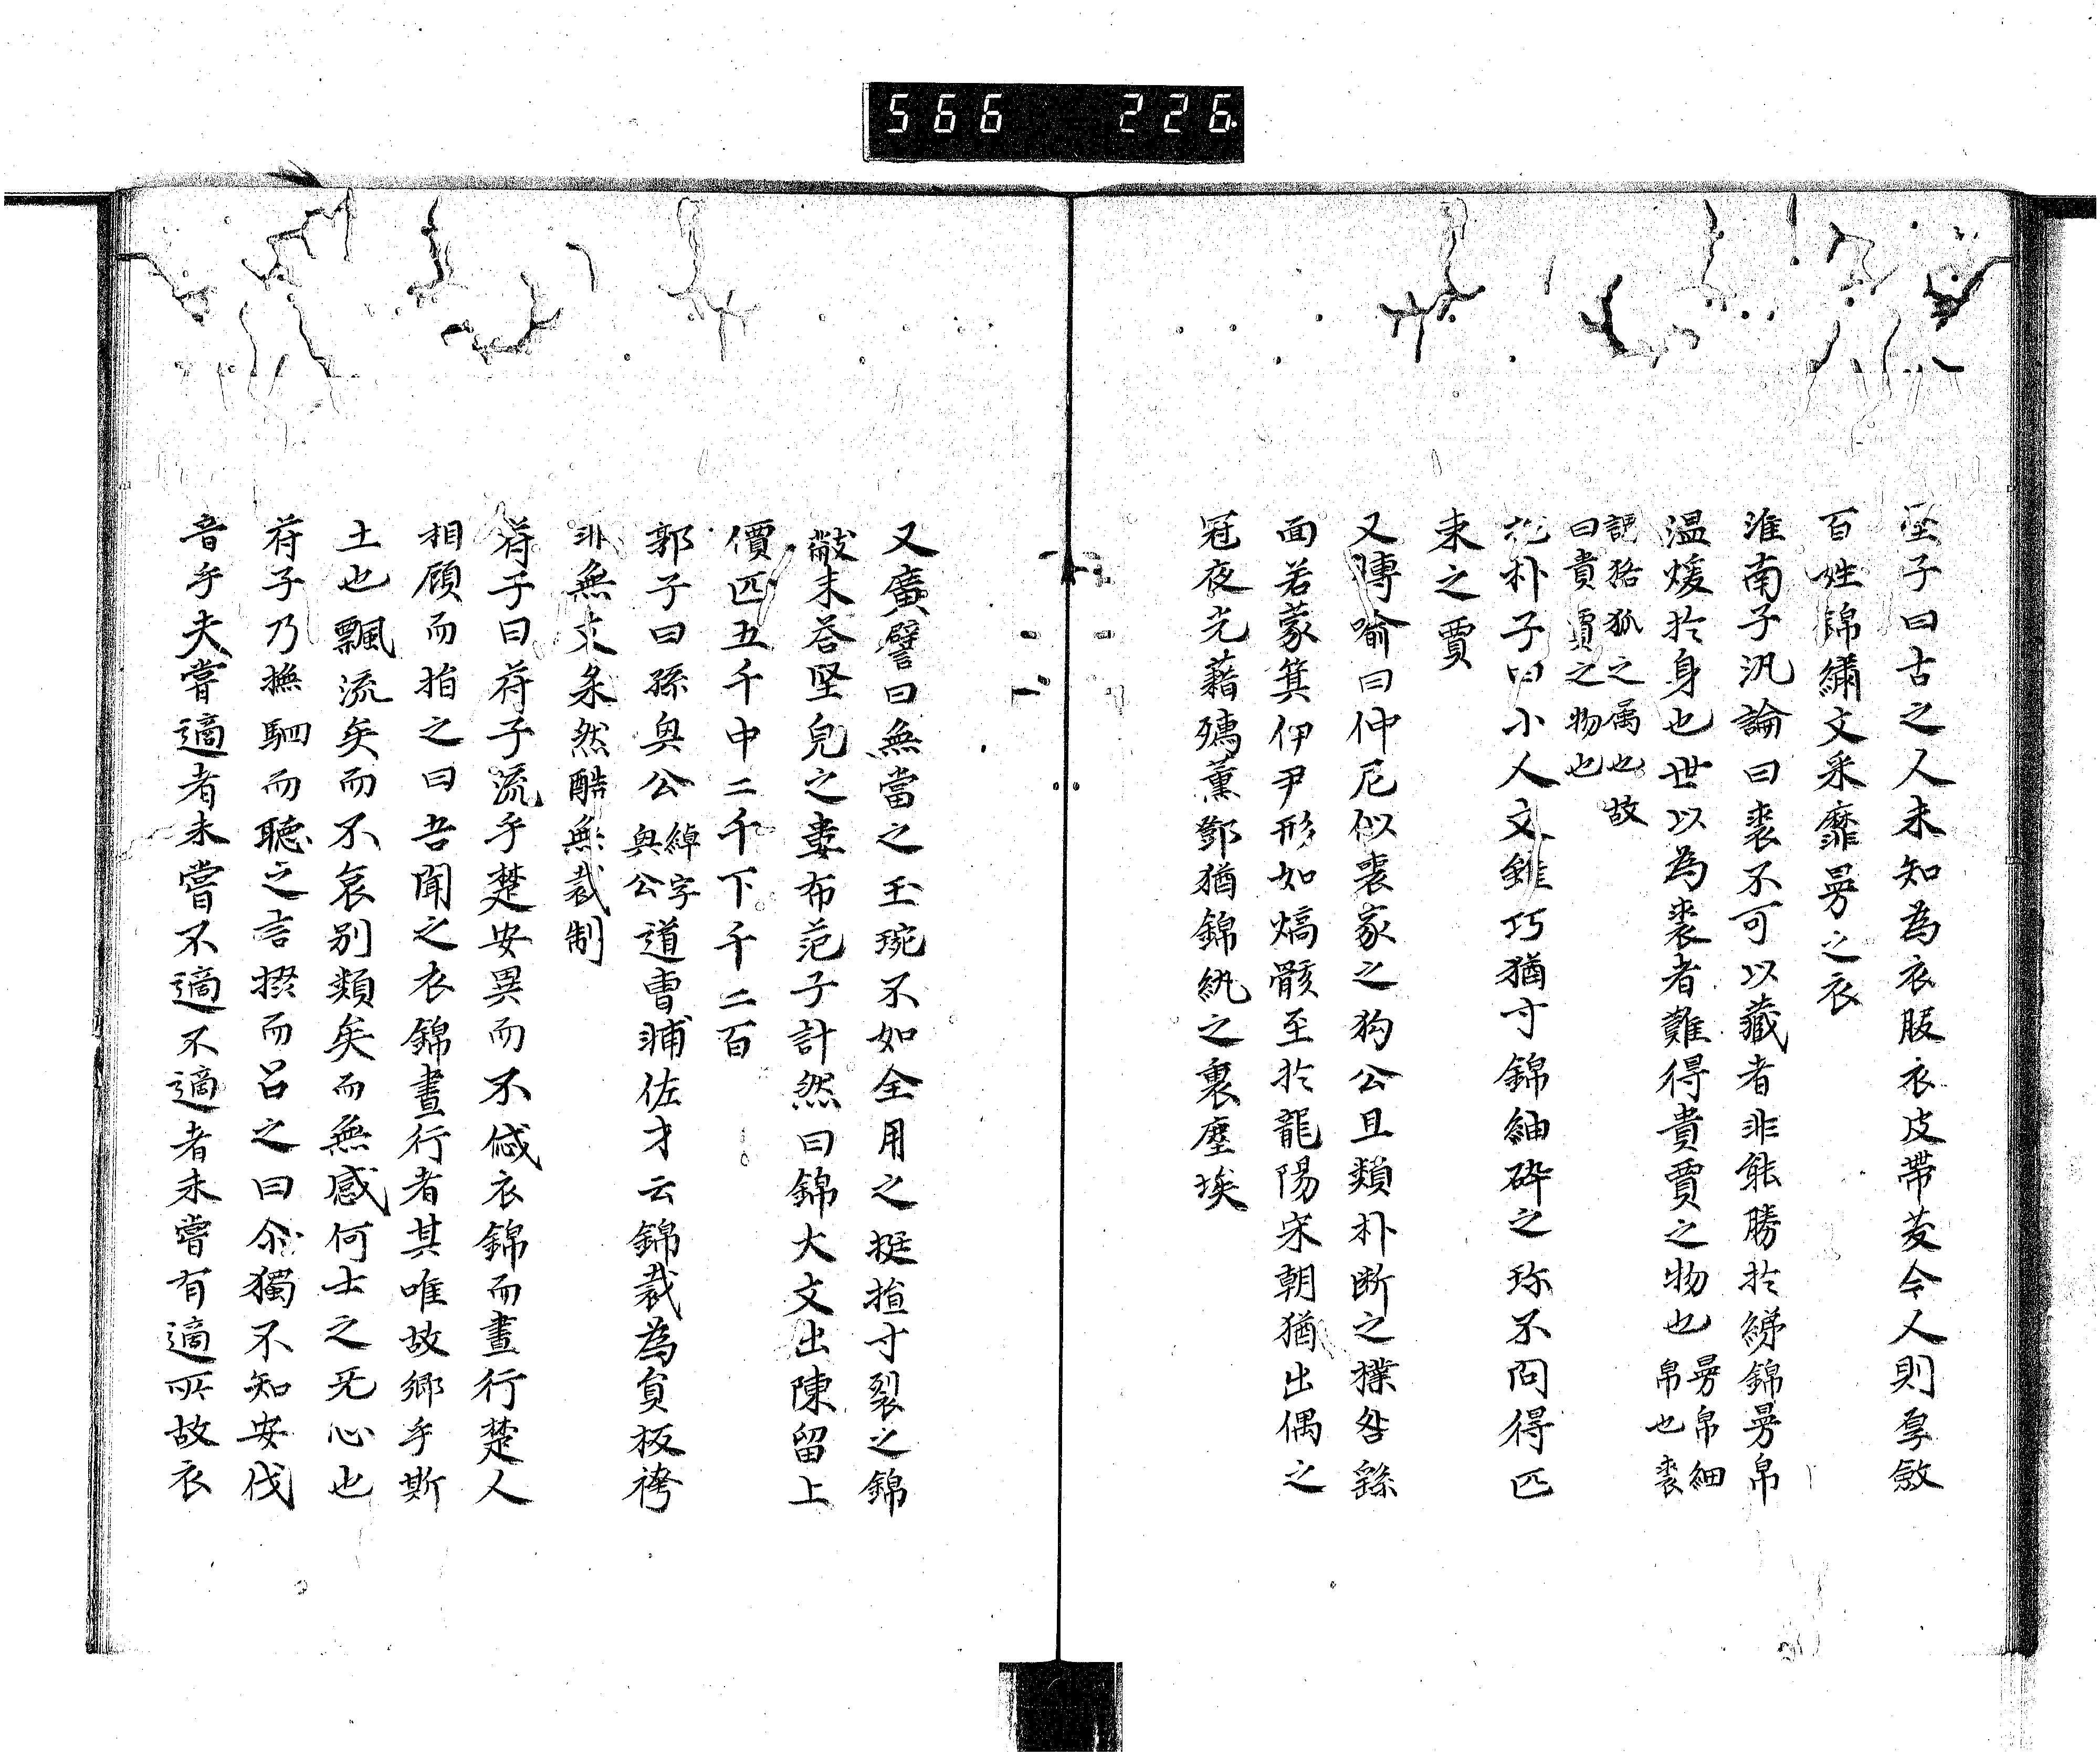 566 226
墨子曰古之人未知為衣服衣皮帶茭今人則厚斂
百姓錦繡文采靡曼之衣
淮南子汎論曰裘不可以藏者非能勝於綈錦曼帛
温煖於身也世以為裘者難得貴賈之物也曼帛細帛也裘
謂狢狐之属也故曰貴賈之物也
抱朴子曰小人文雖巧猶寸錦紬碎之珎不問得匹
束之賈
又博喻曰仲尼似喪家之狗公旦類朴断之㯷咎繇
面若蒙箕伊尹形如熇骸至於龍陽宋朝猶出偶之
冠夜光藉孺董鄧猶錦紈之裹塵埃
又廣譬曰無當之玉琬不如全用之挺揎寸裂之錦
黻未若堅皃之妻布范子計然曰錦大文出陳留上
價匹五千中二千下千二百
郭子曰孫奥公綽字奥公道曹輔佐才云錦裁為負板袴
非無文条然酷無裁制
苻子曰苻子流乎楚安異而不慼衣錦而晝行楚人
相顧而指之曰吾聞之衣錦晝行者其唯故鄉乎斯
土也飄流矣而不哀别類矣而無感何士之旡心也
苻子乃撫駟而聴之言掇而吕之曰尒獨不知安伐
音乎夫嘗適者未嘗不適不適者未嘗有適所故衣